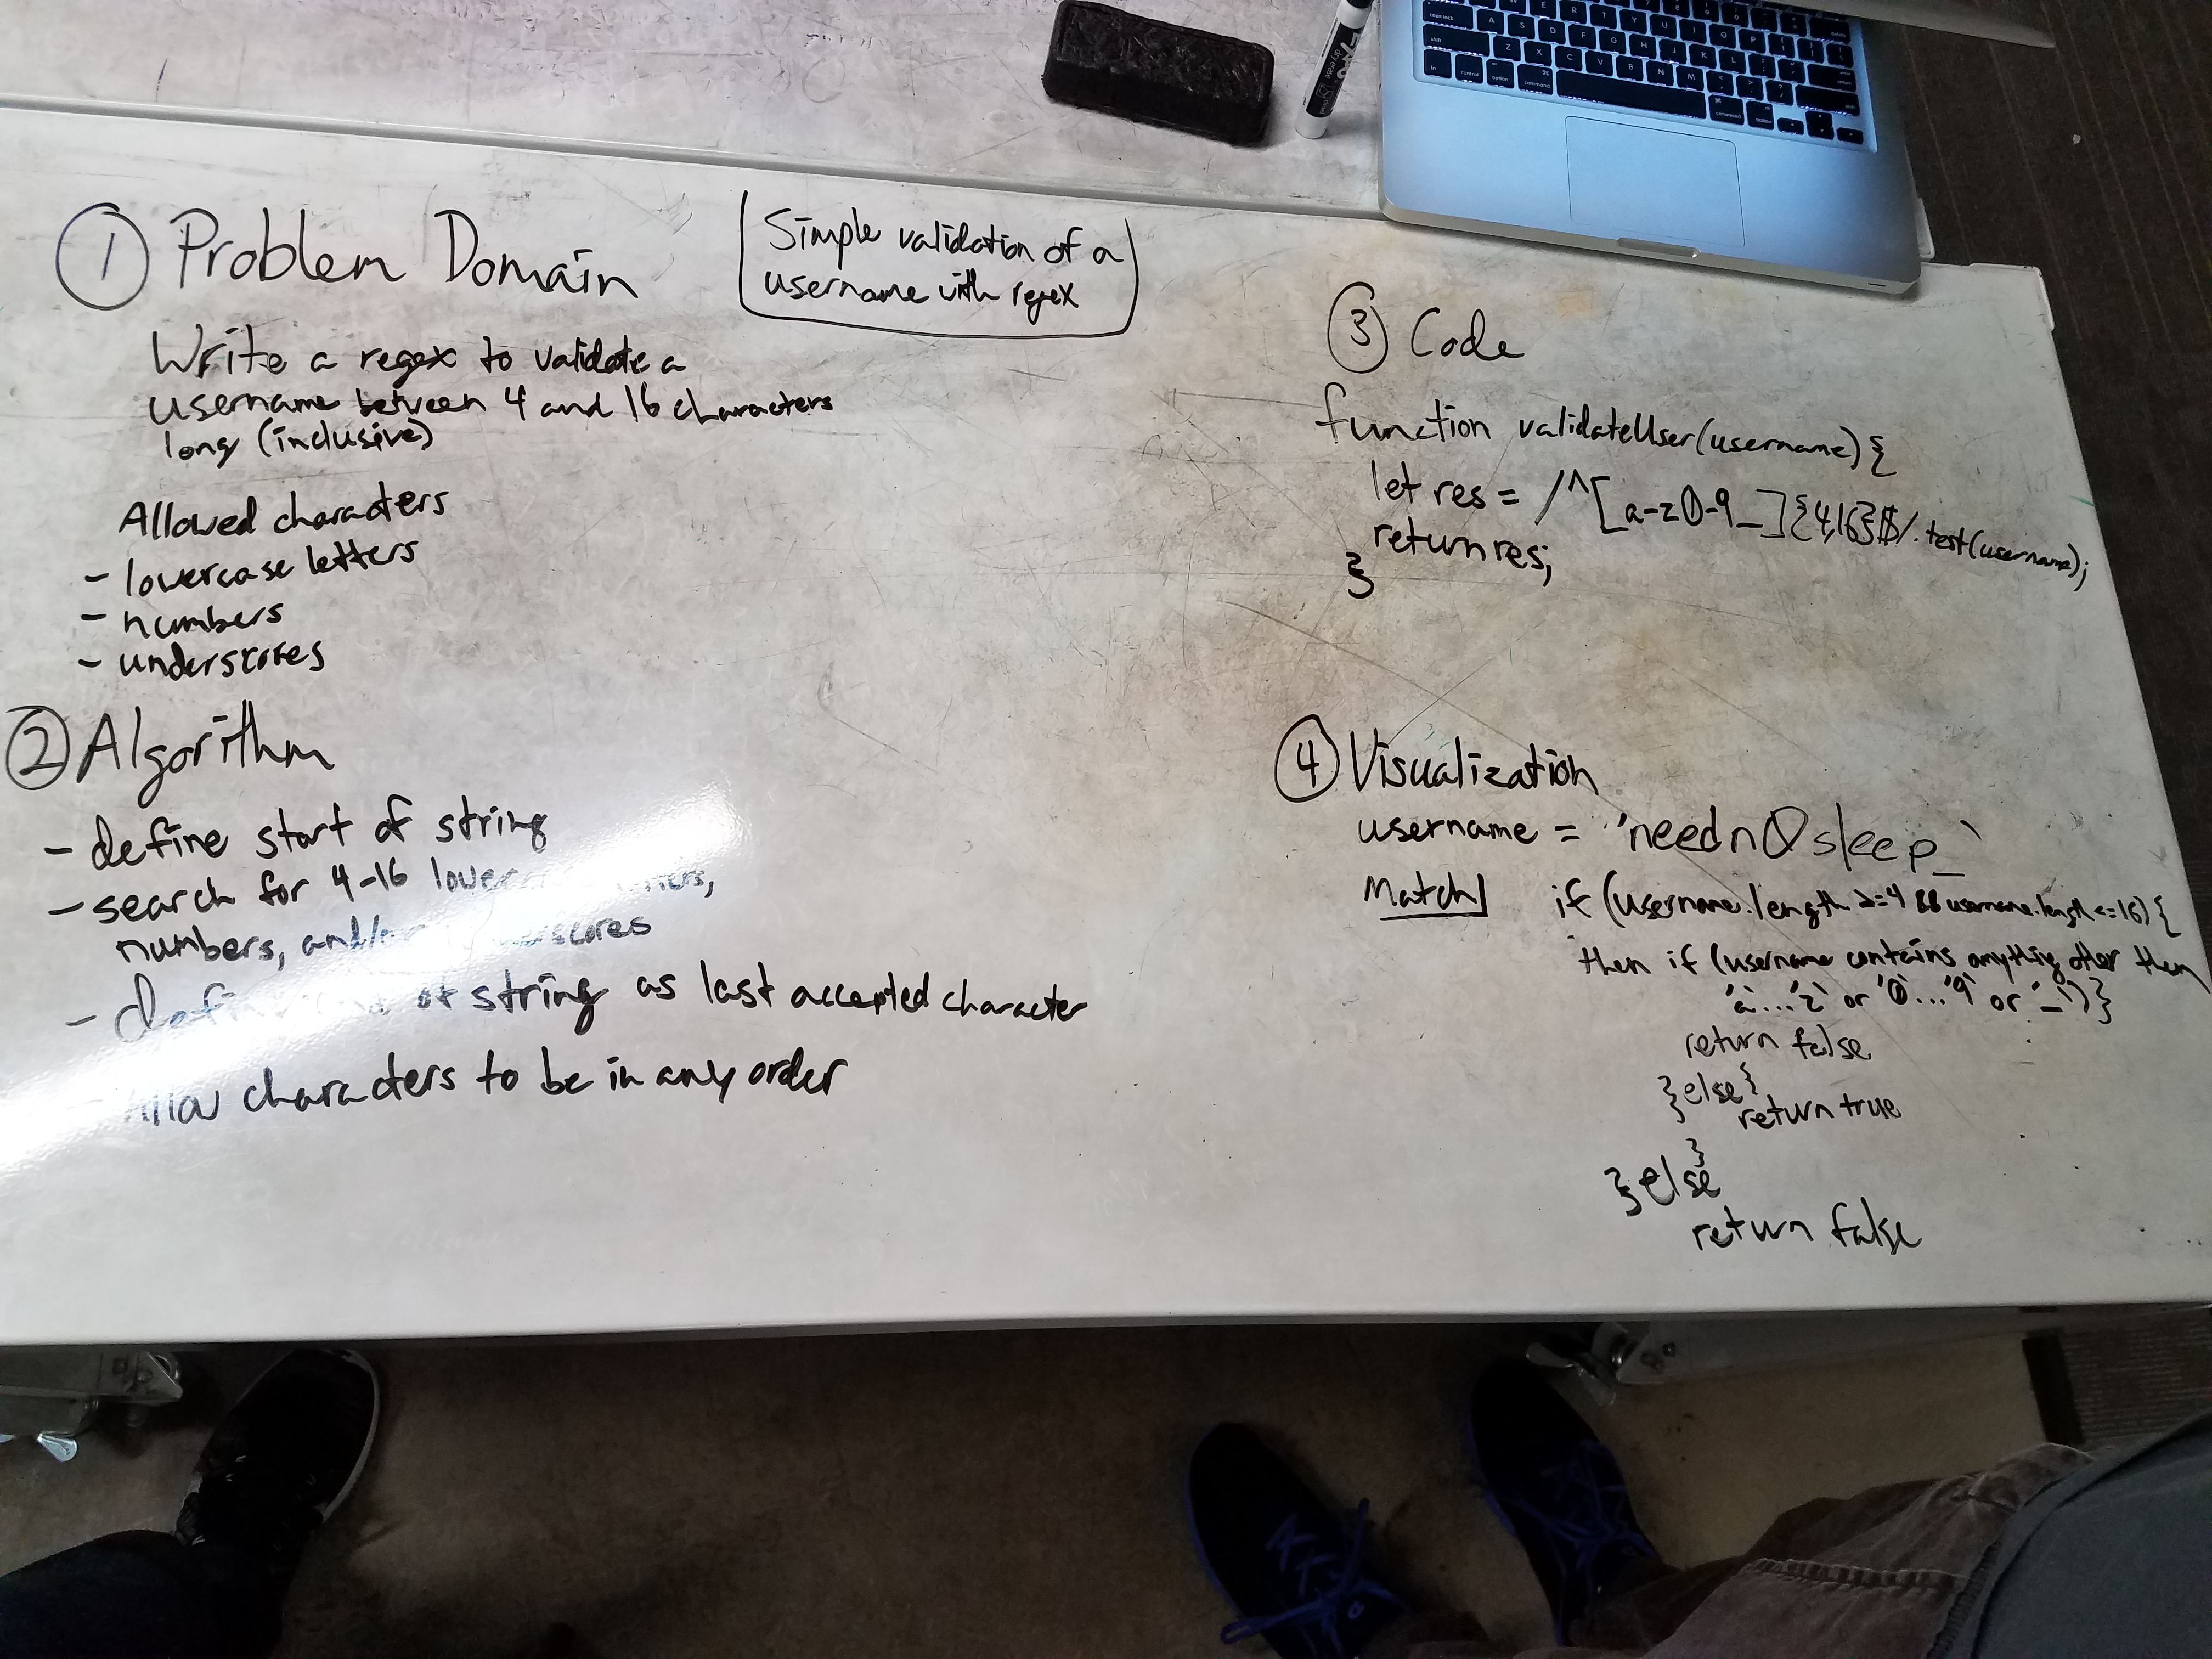 ① Problem Domain
Simple validation of a
username with regex
Write a regex to validate a
username between 4 and 16 characters
long (inclusive)
Allowed characters
- lowercase letters
- numbers
- underscores
② Algorithm
- define start of string
- search for 4-16
numbers, and/or
- of string as last accepted character
Allow characters to be in any order
③ Code
function validateUser(username){
let res = /^[a-z0-9_]{4,16}$/.test(username);
return res;
}
④ Visualization
username = 'needn0sleep_'
Match
if (username.length >=4 && username.length <=16) {
then if (username contains anything other then
'a'...'z' or '0'...'9' or '_')}
return false
}else{
return true
}
}else
return false
EXPO
dry erase
caps lock
A S D F G H J K L
shift
Z X C V B N M
fn control option command
command option